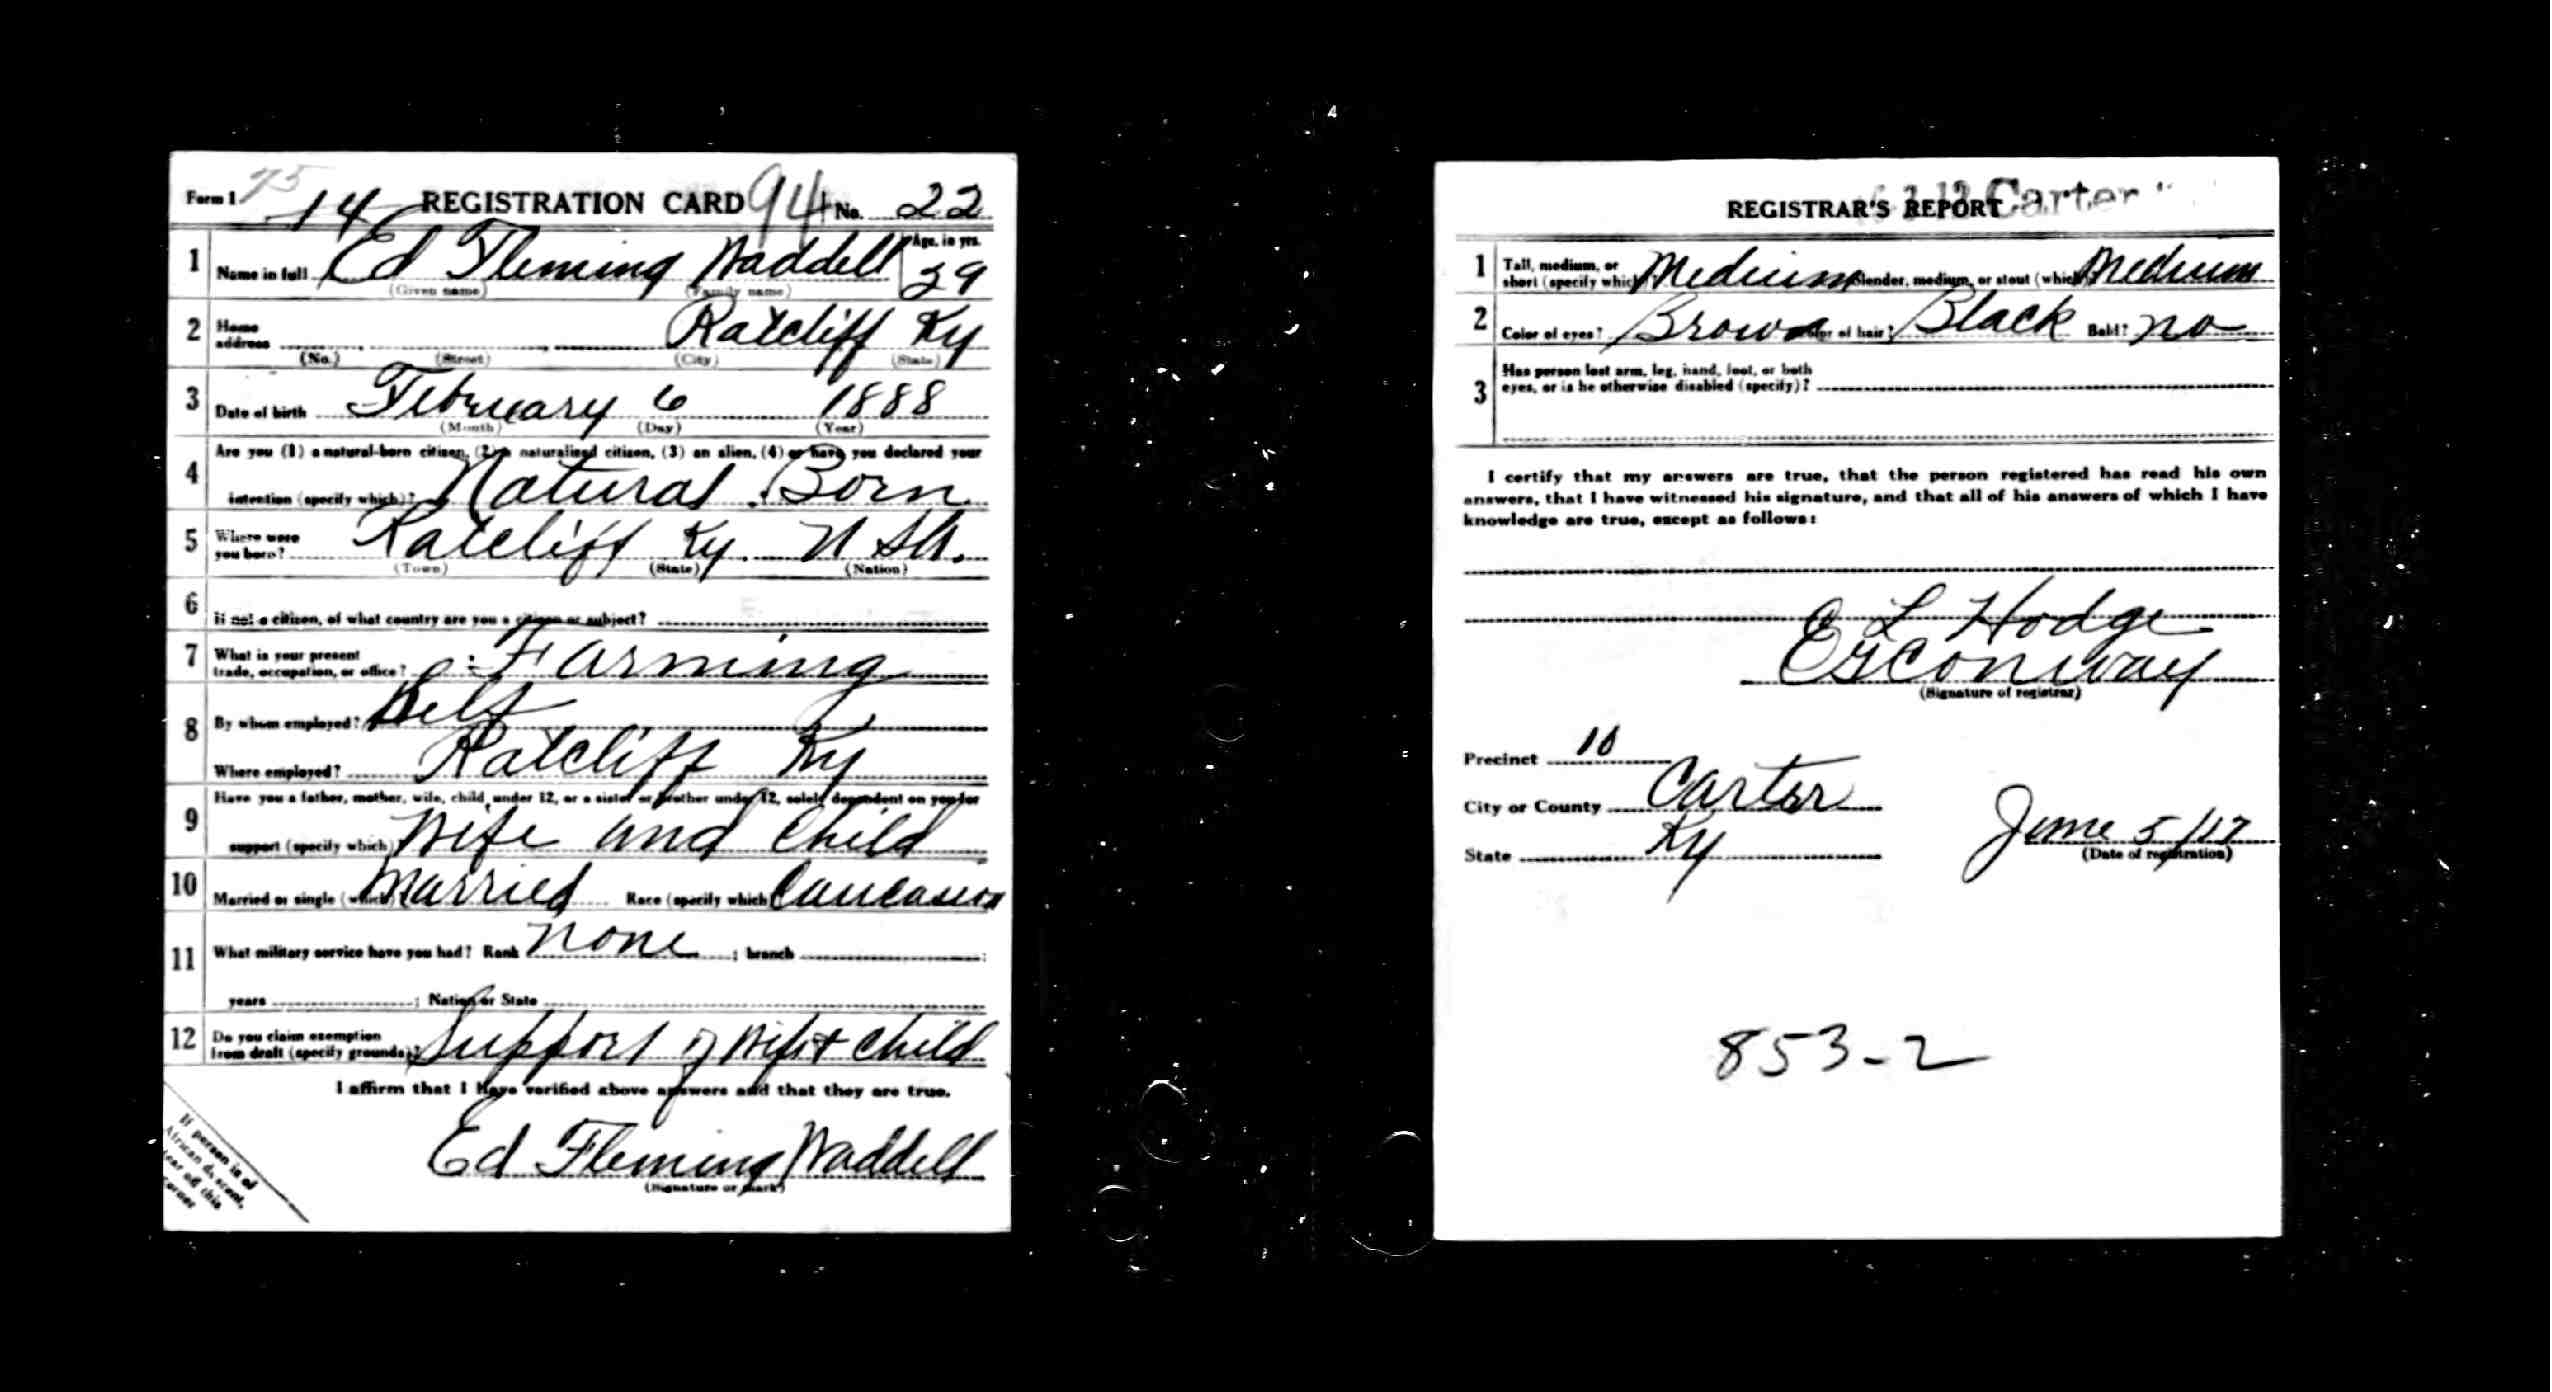 Form 1 75 14 REGISTRATION CARD 94 No. 22
1 Name in full Ed Fleming Waddell Age, in yrs. 29
(Given name) (Family name)
2 Home address Ratcliff Ky
(No.) (Street) (City) (State)
3 Date of birth February 6 1888
(Month) (Day) (Year)
4 Are you (1) a natural-born citizen, (2) a naturalized citizen, (3) an alien, (4) or have you declared your
intention (specify which)? Natural Born
5 Where were you born? Ratcliff Ky. U SA.
(Town) (State) (Nation)
6 If not a citizen, of what country are you a citizen or subject?
7 What is your present
trade, occupation, or office? Farming
8 By whom employed? Self
Where employed? Ratcliff Ky
9 Have you a father, mother, wife, child under 12, or a sister or brother under 12, solely dependent on you for
support (specify which) Wife and Child
10 Married or single (which) Married Race (specify which) Caucasian
11 What military service have you had? Rank none ; branch ;
years ; Nation or State
12 Do you claim exemption
from draft (specify grounds)? Support of Wife + Child
I affirm that I have verified above answers and that they are true.
Ed Fleming Waddell
(Signature or mark)
If person is of
African descent,
tear off this
corner
4
Carter
REGISTRAR'S REPORT
1 Tall, medium, or
short (specify which)? Medium Slender, medium, or stout (which)? Medium
2 Color of eyes? Brown Color of hair? Black Bald? no
3 Has person lost arm, leg, hand, foot, or both
eyes, or is he otherwise disabled (specify)?
I certify that my answers are true, that the person registered has read his own
answers, that I have witnessed his signature, and that all of his answers of which I have
knowledge are true, except as follows:
E L Hodge
Conway
(Signature of registrar)
Precinct 10
City or County Carter
State Ky June 5/17
(Date of registration)
853-2